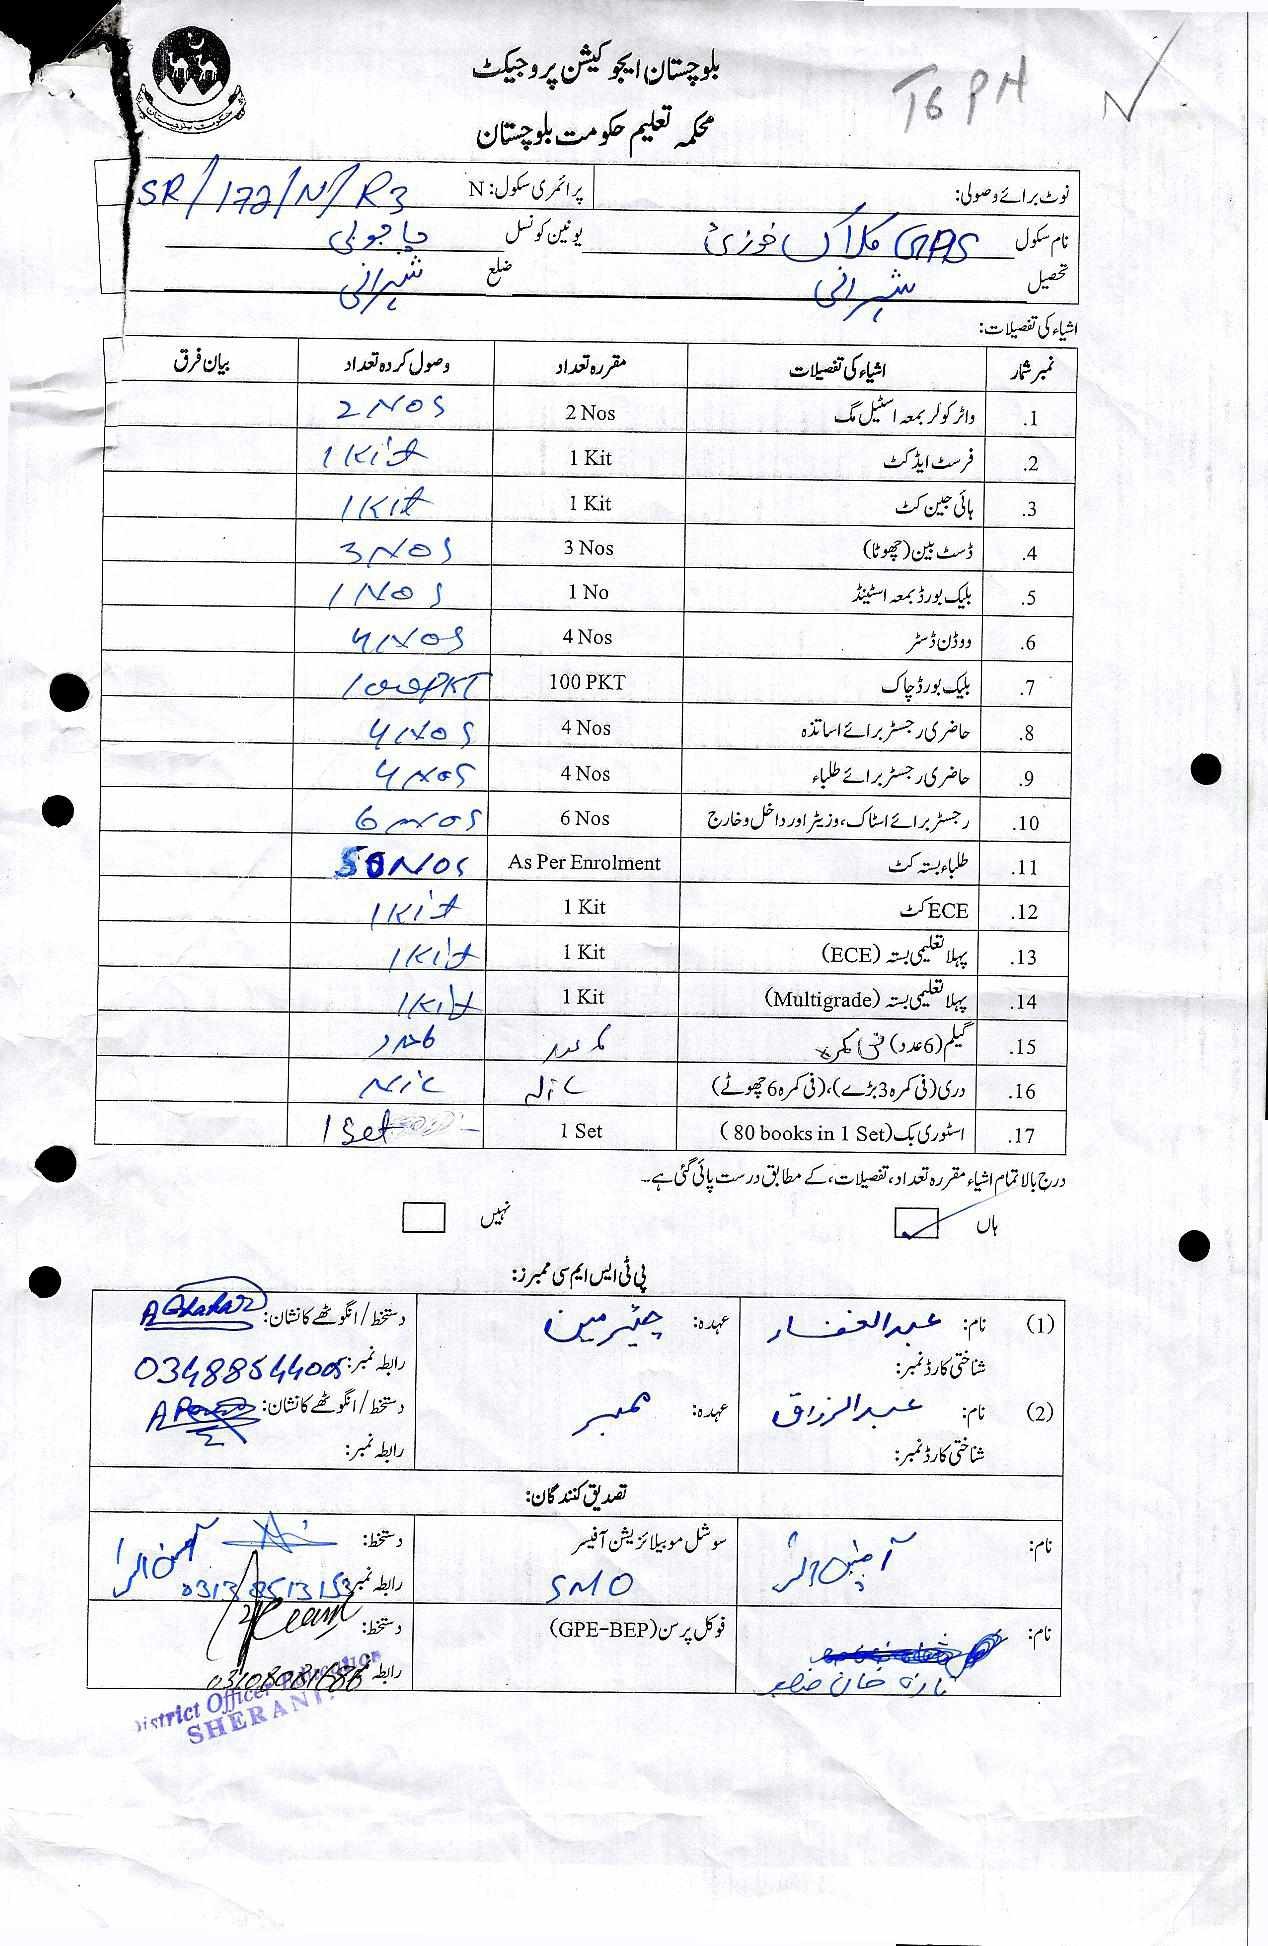 بلوچستان ایجوکیشن پروجیکٹ
TG PN
محکمہ تعلیم حکومت بلوچستان
نوٹ برائے وصولی: پرائمری سکول: N SR/172/N/R3
نام سکول GPS یونین کونسل
تحصیل شیرانی ضلع شیرانی
اشیاء کی تفصیلات:
نمبر شمار اشیاء کی تفصیلات مقررہ تعداد وصول کردہ تعداد بیان فرق
1. واٹر کولر بمعہ اسٹیل مگ 2 Nos 2 Nos
2. فرسٹ ایڈ کٹ 1 Kit 1 Kit
3. ہائی جین کٹ 1 Kit 1 Kit
4. ڈسٹ بین (چھوٹا) 3 Nos 3 Nos
5. بلیک بورڈ بمعہ اسٹینڈ 1 No 1 Nos
6. ووڈن ڈسٹر 4 Nos 4 Nos
7. بلیک بورڈ چاک 100 PKT 100 PKT
8. حاضری رجسٹر برائے اساتذہ 4 Nos 4 Nos
9. حاضری رجسٹر برائے طلباء 4 Nos 4 Nos
10. رجسٹر برائے اسٹاک، وزیٹر اور داخل و خارج 6 Nos 6 Nos
11. طلباء بستہ کٹ As Per Enrolment 50 Nos
12. ECE کٹ 1 Kit 1 Kit
13. پہلا تعلیمی بستہ (ECE) 1 Kit 1 Kit
14. پہلا تعلیمی بستہ (Multigrade) 1 Kit 1 Kit
15. گیلم (6 عدد) فی کمرہ عدد 6 عدد
16. دری (فی کمرہ 3 بڑے)، (فی کمرہ 6 چھوٹے) Nil Nil
17. اسٹوری بک (80 books in 1 Set) 1 Set 1 Set
درج بالا تمام اشیاء مقررہ تعداد، تفصیلات، کے مطابق درست پائی گئی ہے۔
ہاں نہیں
پی ٹی ایس ایم سی ممبرز:
(1) نام: عبدالغفار عہدہ: چیئرمین دستخط/انگوٹھے کا نشان: A Ghafar
شناختی کارڈ نمبر: رابطہ نمبر: 03488544005
(2) نام: عبدالرزاق عہدہ: ممبر دستخط/انگوٹھے کا نشان:
شناختی کارڈ نمبر: رابطہ نمبر:
تصدیق کنندگان:
نام: سوشل موبیلائزیشن آفیسر دستخط:
SMO رابطہ نمبر 03138513153
نام: فوکل پرسن (GPE-BEP) دستخط:
خان رابطہ نمبر
District Officer Education
SHERANI